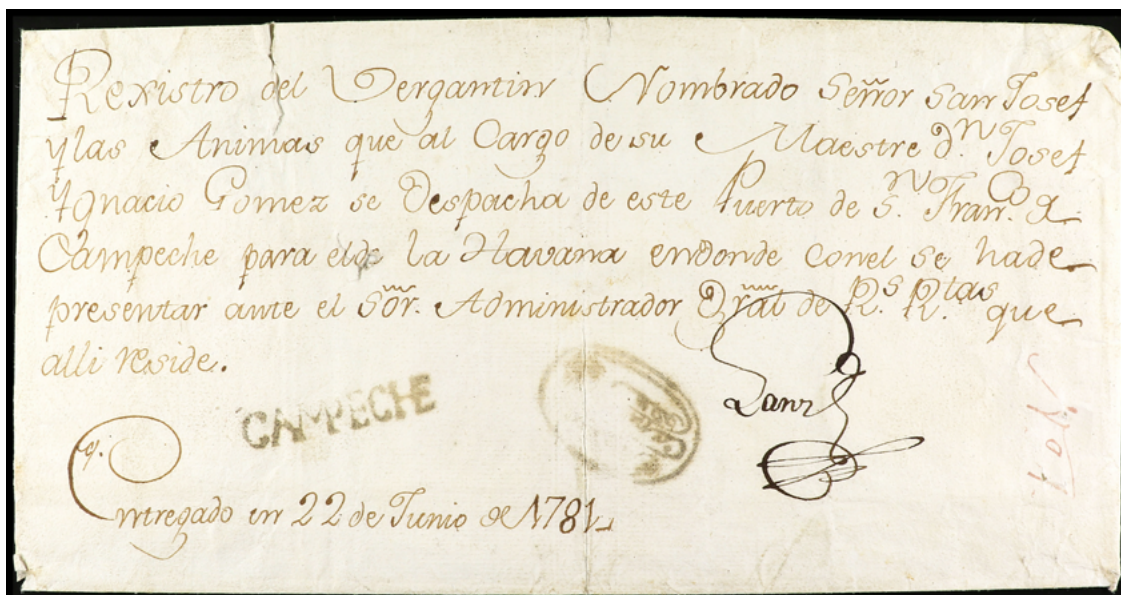 Rexistro del Vergantin Nombrado Señor San Josef
y las Animas que al Cargo de su Maestre dn. Josef
Ygnacio Gomez se Despacha de este Puerto de Sn. Franco. d
Campeche para el de la Havana en donde con el se ha de
presentar ante el Sõr. Administrador Gral de Rs. Rptas. que
alli reside.
CAMPECHE
Lanz
Entregado en 22 de Junio de 1781